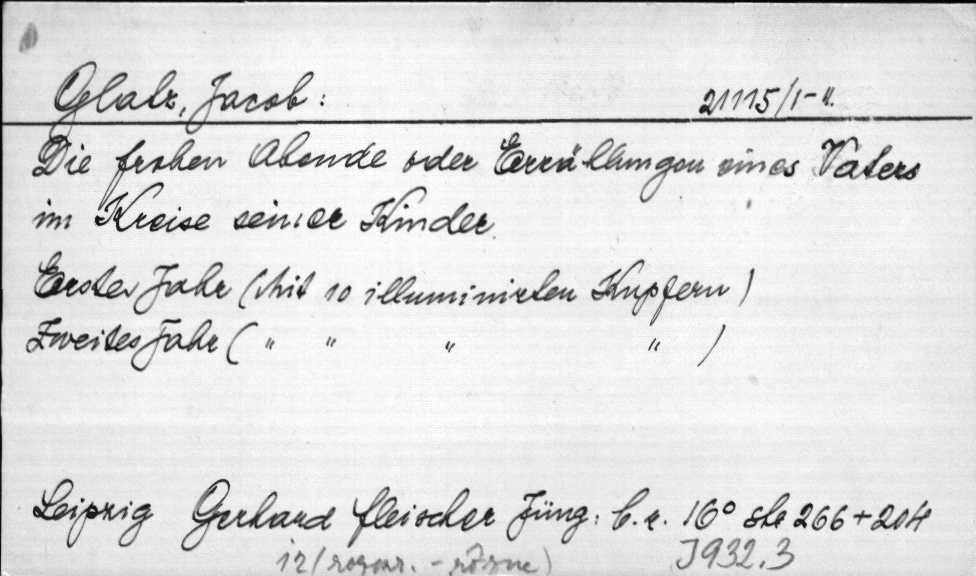 Glatz, Jacob: 21115/I-II.
Die frohen Abende oder Erzählungen eines Vaters
im Kreise seiner Kinder.
Erstes Jahr (Mit 10 illuminirten Kupfern)
Zweites Jahr ( " " " " )
Leipzig Gerhard Fleischer Jüng: 16° str 266+204
J932.3